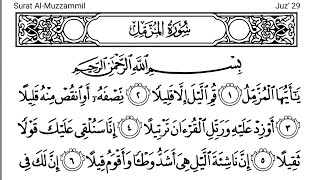 Surat Al-Muzzammil Juz' 29
سُورَةُ المُزَّمِّلِ
بِسْمِ اللَّهِ الرَّحْمَٰنِ الرَّحِيمِ
يَٰٓأَيُّهَا ٱلْمُزَّمِّلُ ١ قُمِ ٱلَّيْلَ إِلَّا قَلِيلًا ٢ نِّصْفَهُۥٓ أَوِ ٱنقُصْ مِنْهُ قَلِيلًا
٣ أَوْ زِدْ عَلَيْهِ وَرَتِّلِ ٱلْقُرْءَانَ تَرْتِيلًا ٤ إِنَّا سَنُلْقِى عَلَيْكَ قَوْلًا
ثَقِيلًا ٥ إِنَّ نَاشِئَةَ ٱلَّيْلِ هِىَ أَشَدُّ وَطْـًٔا وَأَقْوَمُ قِيلًا ٦ إِنَّ لَكَ فِى